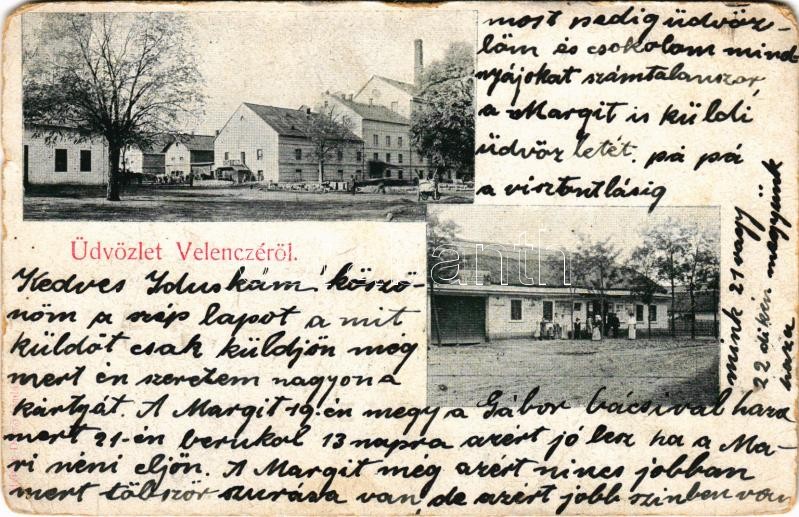 Üdvözlet Velenczéről.
Kedves Iduskám! köszö-
nöm a szép lapot a mit
küldöt csak küldjön meg
mert én szeretem nagyon a
kártyát. A Margit 19-én megy a Gábor bácsival haza
mert 21-én berukol 13 napra azért jó lesz ha a Ma-
ri néni eljön. A Margit még azért nincs jobban
mert többször szurása van, de azért jobb szinben van
most pedig üdvöz-
löm és csokolom mind-
nyájokat számtalanszor,
a Margit is küldi
üdvözletét. pá pá
a viszontlásig
mink 21 vagy
22 dikén megyünk
haza